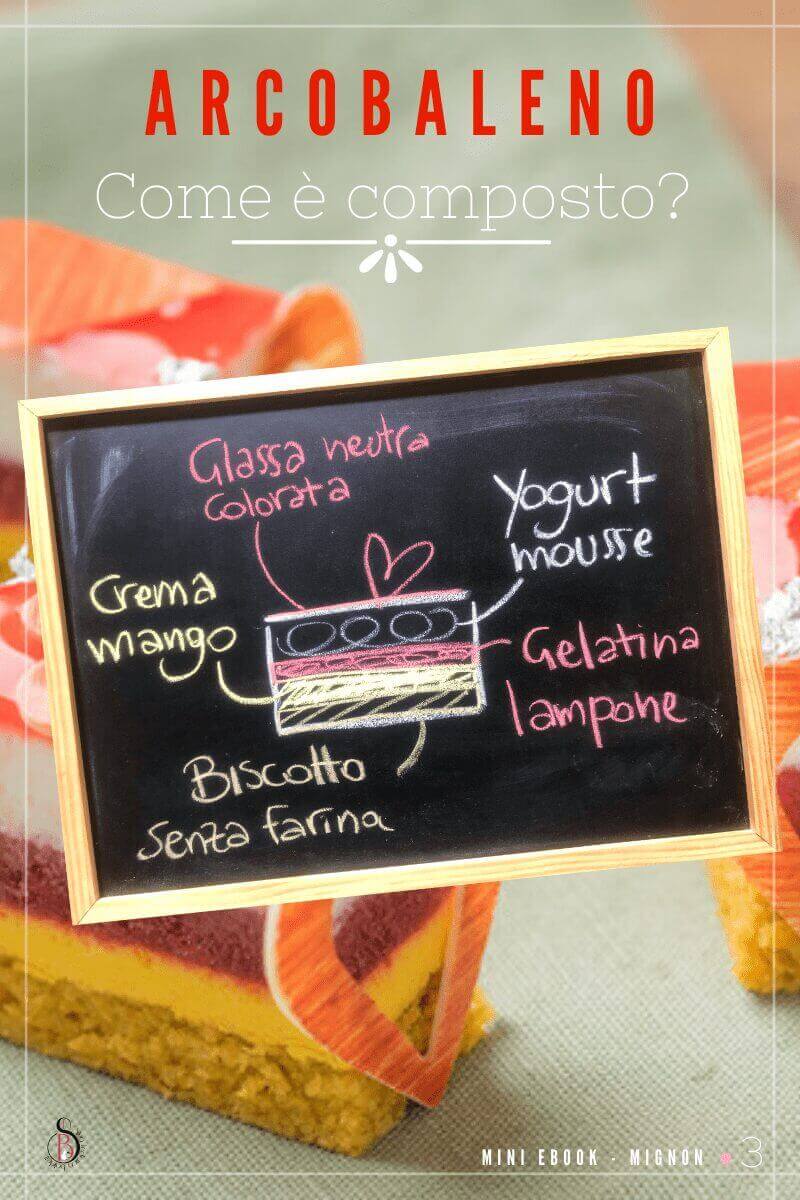 ARCOBALENO
Come è composto?
Glassa neutra
colorata
Yogurt
mousse
Crema
mango
Gelatina
lampone
Biscotto
senza farina
MINI EBOOK - MIGNON 3